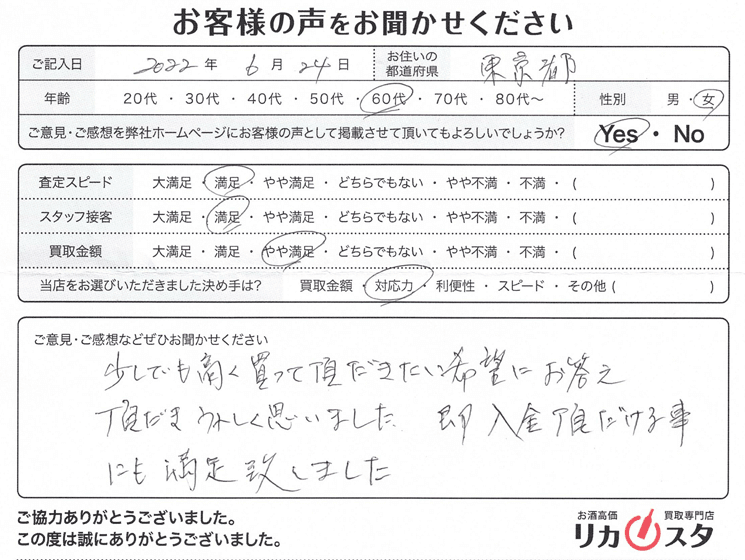 お客様の声をお聞かせください
ご記入日 2022 年 6 月 24 日 お住いの都道府県 東京都
年齢 20代 ・ 30代 ・ 40代 ・ 50代 ・ 60代 ・ 70代 ・ 80代～ 性別 男 ・ 女
ご意見・ご感想を弊社ホームページにお客様の声として掲載させて頂いてもよろしいでしょうか? Yes ・ No
査定スピード 大満足 ・ 満足 ・ やや満足 ・ どちらでもない ・ やや不満 ・ 不満 ・ ( )
スタッフ接客 大満足 ・ 満足 ・ やや満足 ・ どちらでもない ・ やや不満 ・ 不満 ・ ( )
買取金額 大満足 ・ 満足 ・ やや満足 ・ どちらでもない ・ やや不満 ・ 不満 ・ ( )
当店をお選びいただきました決め手は? 買取金額 ・ 対応力 ・ 利便性 ・ スピード ・ その他 ( )
ご意見・ご感想などぜひお聞かせください
少しでも高く買って頂だきたい希望にお答え
頂だまうれしく思いました 即入金頂だける事
にも満足致しました
ご協力ありがとうございました。
この度は誠にありがとうございました。
お酒高価 買取専門店
リカスタ